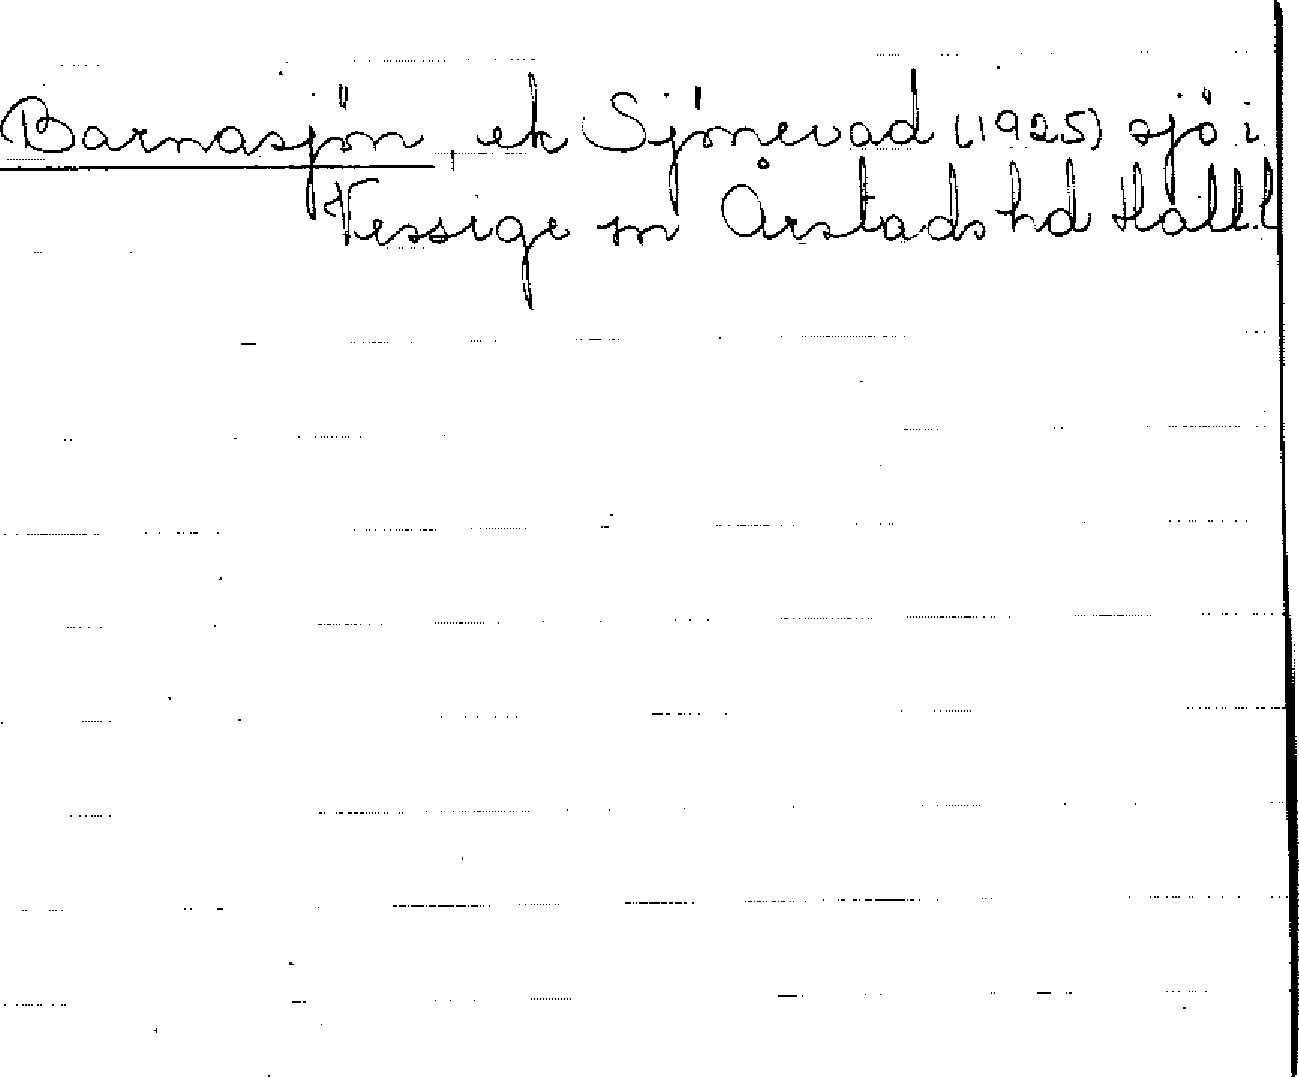 Barnasjön, ek Sjönevad (1925) sjö i
Vessige sn Årstads hd Hall. l